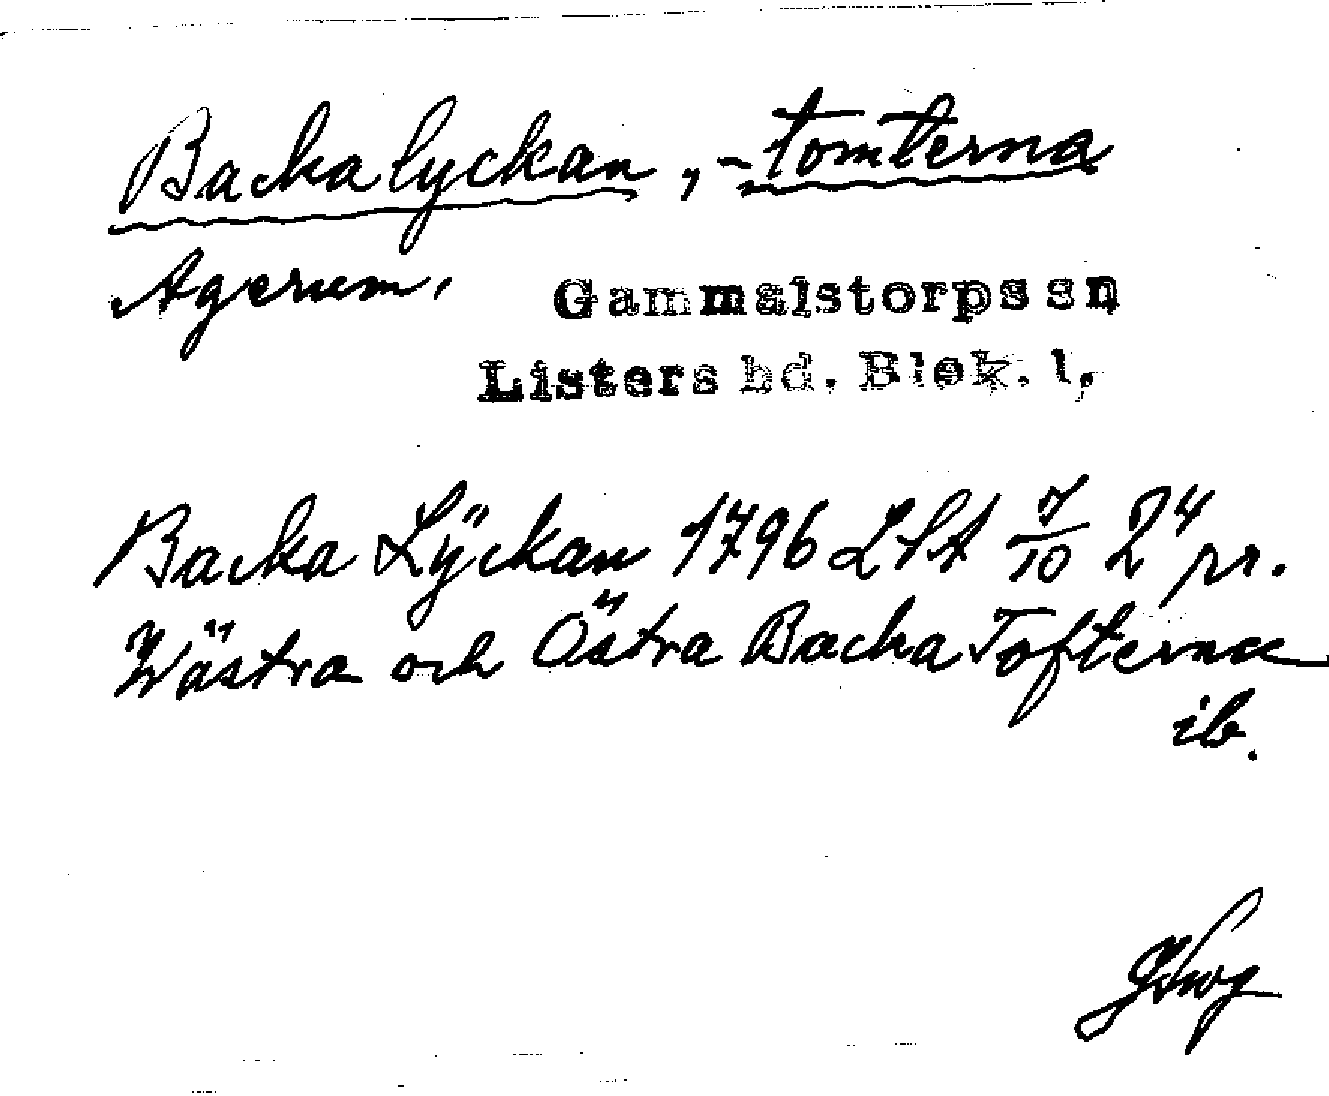 Backalyckan, -tomterna
Agerum, Gammalstorps sn
Listers hd. Blek. l.
Backa Lÿckan 1796 LSA 7/10 24 pr.
Wästra och Östra Backa Tofterna
ib.